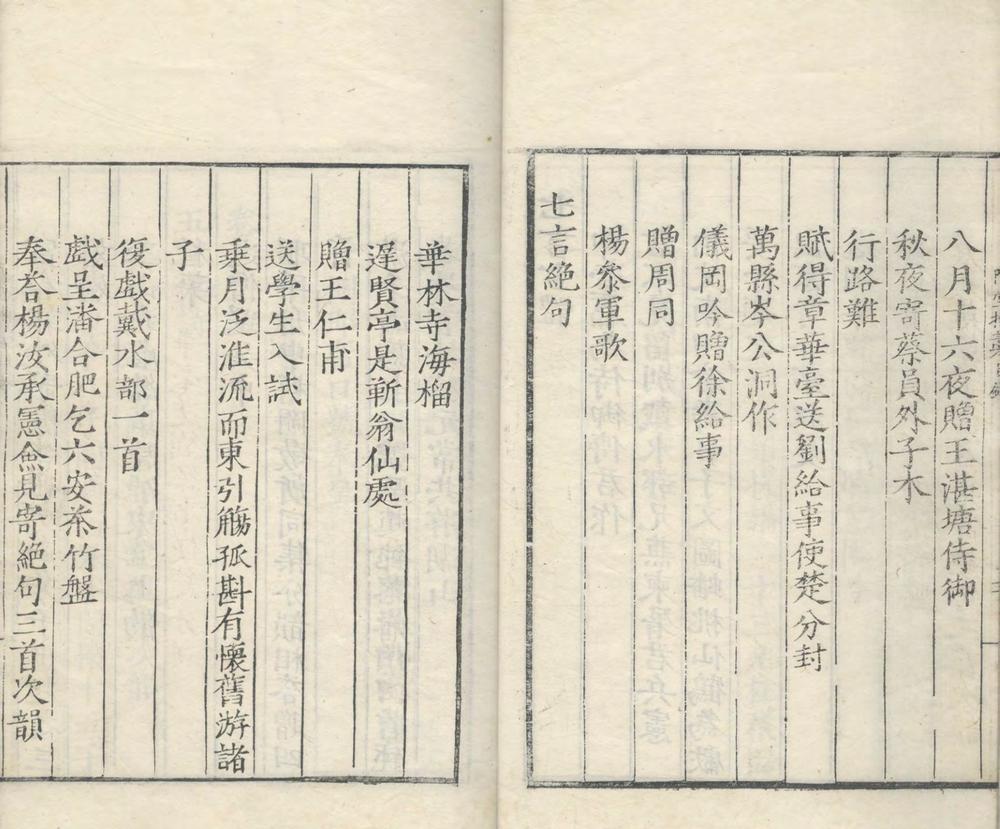 八月十六夜贈王湛塘侍御
秋夜寄蔡員外子木
行路難
賦得章華臺送劉給事使楚分封
萬縣岑公洞作
儀岡吟贈徐給事
贈周同
楊叅軍歌
七言絶句
華林寺海榴
遲賢亭是蘄翁仙處
贈王仁甫
送學生入試
乗月泛淮流而東引觴孤斟有懷舊游諸
子
復戲戴水部一首
戲呈潘合肥乞六安茶竹盤
奉荅楊汝承憲僉見寄絶句三首次韻